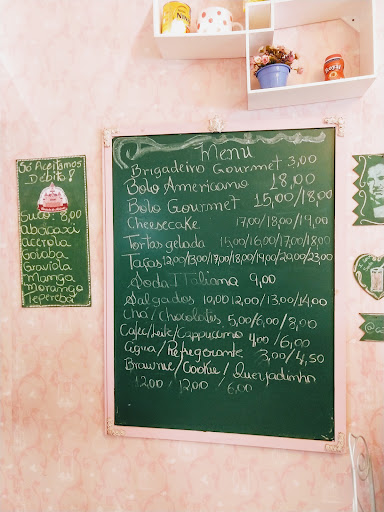 Só Aceitamos
Débito!
Suco: 8,00
Abacaxi
Acerola
Goiaba
Graviola
Manga
Morango
Tepereba
Menu
Brigadeiro Gourmet 3,00
Bolo Americano 18,00
Bolo Gourmet 15,00/18,00
Cheesecake 17,00/18,00/19,00
Tortas gelada 15,00/16,00/17,00/18,00
Taças 12,00/13,00/17,00/18,00/19,00/20,00/23,00
Soda ITaliana 9,00
Salgados 10,00 12,00/13,00/14,00
Chá/Chocolates 5,00/6,00/8,00
Café/Leite/Cappuccino 4,00/6,00
Água/Refrigerante 3,00/4,50
Brownie/Cookie/Queijadinha
12,00 12,00 6,00